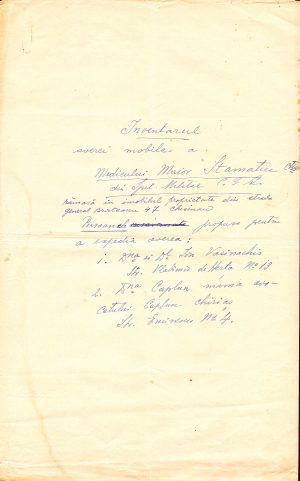 Inventarul
averei mobile a
Medicului Maior Stamatiu
din Spit. Militar C.F.R.
rămasă în imobilul proprietate din strada
general Berteanu 47 Chișinău
Persoanele propuse pentru
a expedia averea:
1. Dna și Dl. Ion Vasinachis
Str. Vladimir de Herta No 13
2. Dna Caplun mama avo-
catului Caplun chiriaș
Str. Eminescu No 4.